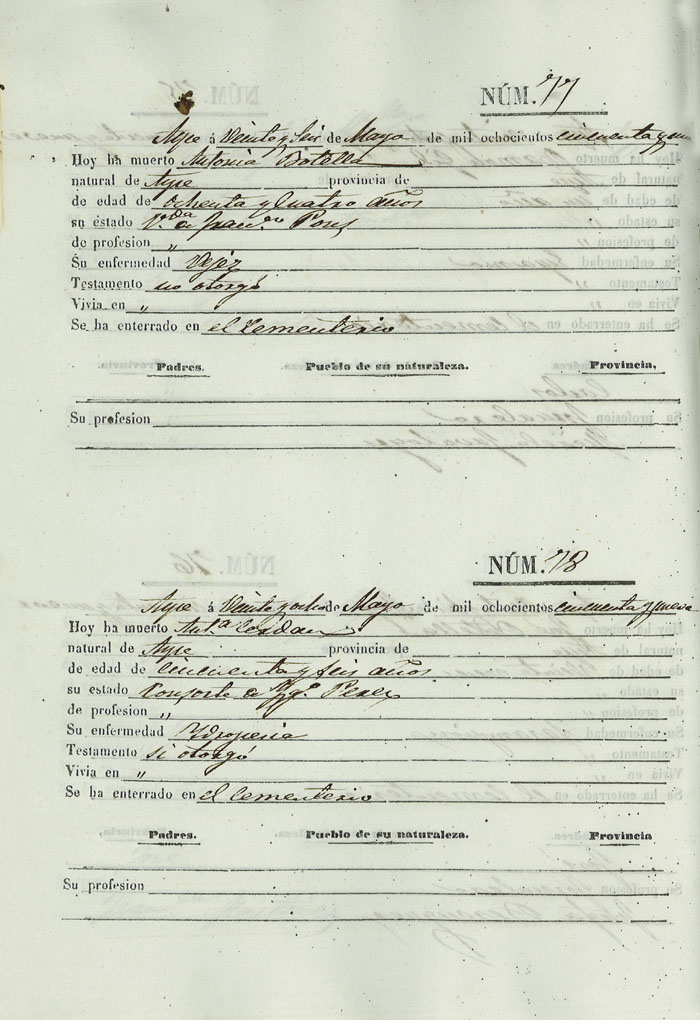 NÚM. 77
Aspe á Veinte y seis de Mayo de mil ochocientos cincuenta y nueve
Hoy ha muerto Antonia Botella
natural de Aspe provincia de
de edad de ochenta y quatro años
su estado V.da de Fran.co Pons
de profesion „
Su enfermedad Vejez
Testamento no otorgó
Vivia en „
Se ha enterrado en el Cementerio
Padres. Pueblo de su naturaleza. Provincia,
Su profesion
NÚM. 78
Aspe á Veinte y ocho de Mayo de mil ochocientos cincuenta y nueve
Hoy ha muerto Ant.a Cerdan
natural de Aspe provincia de
de edad de cincuenta y seis años
su estado Consorte de Perez
de profesion „
Su enfermedad Ydropesia
Testamento si otorgó
Vivia en „
Se ha enterrado en el Cementerio
Padres. Pueblo de su naturaleza. Provincia
Su profesion